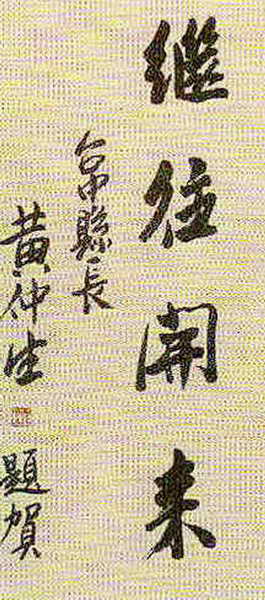 繼往開来
台中縣長
黃仲生 題賀